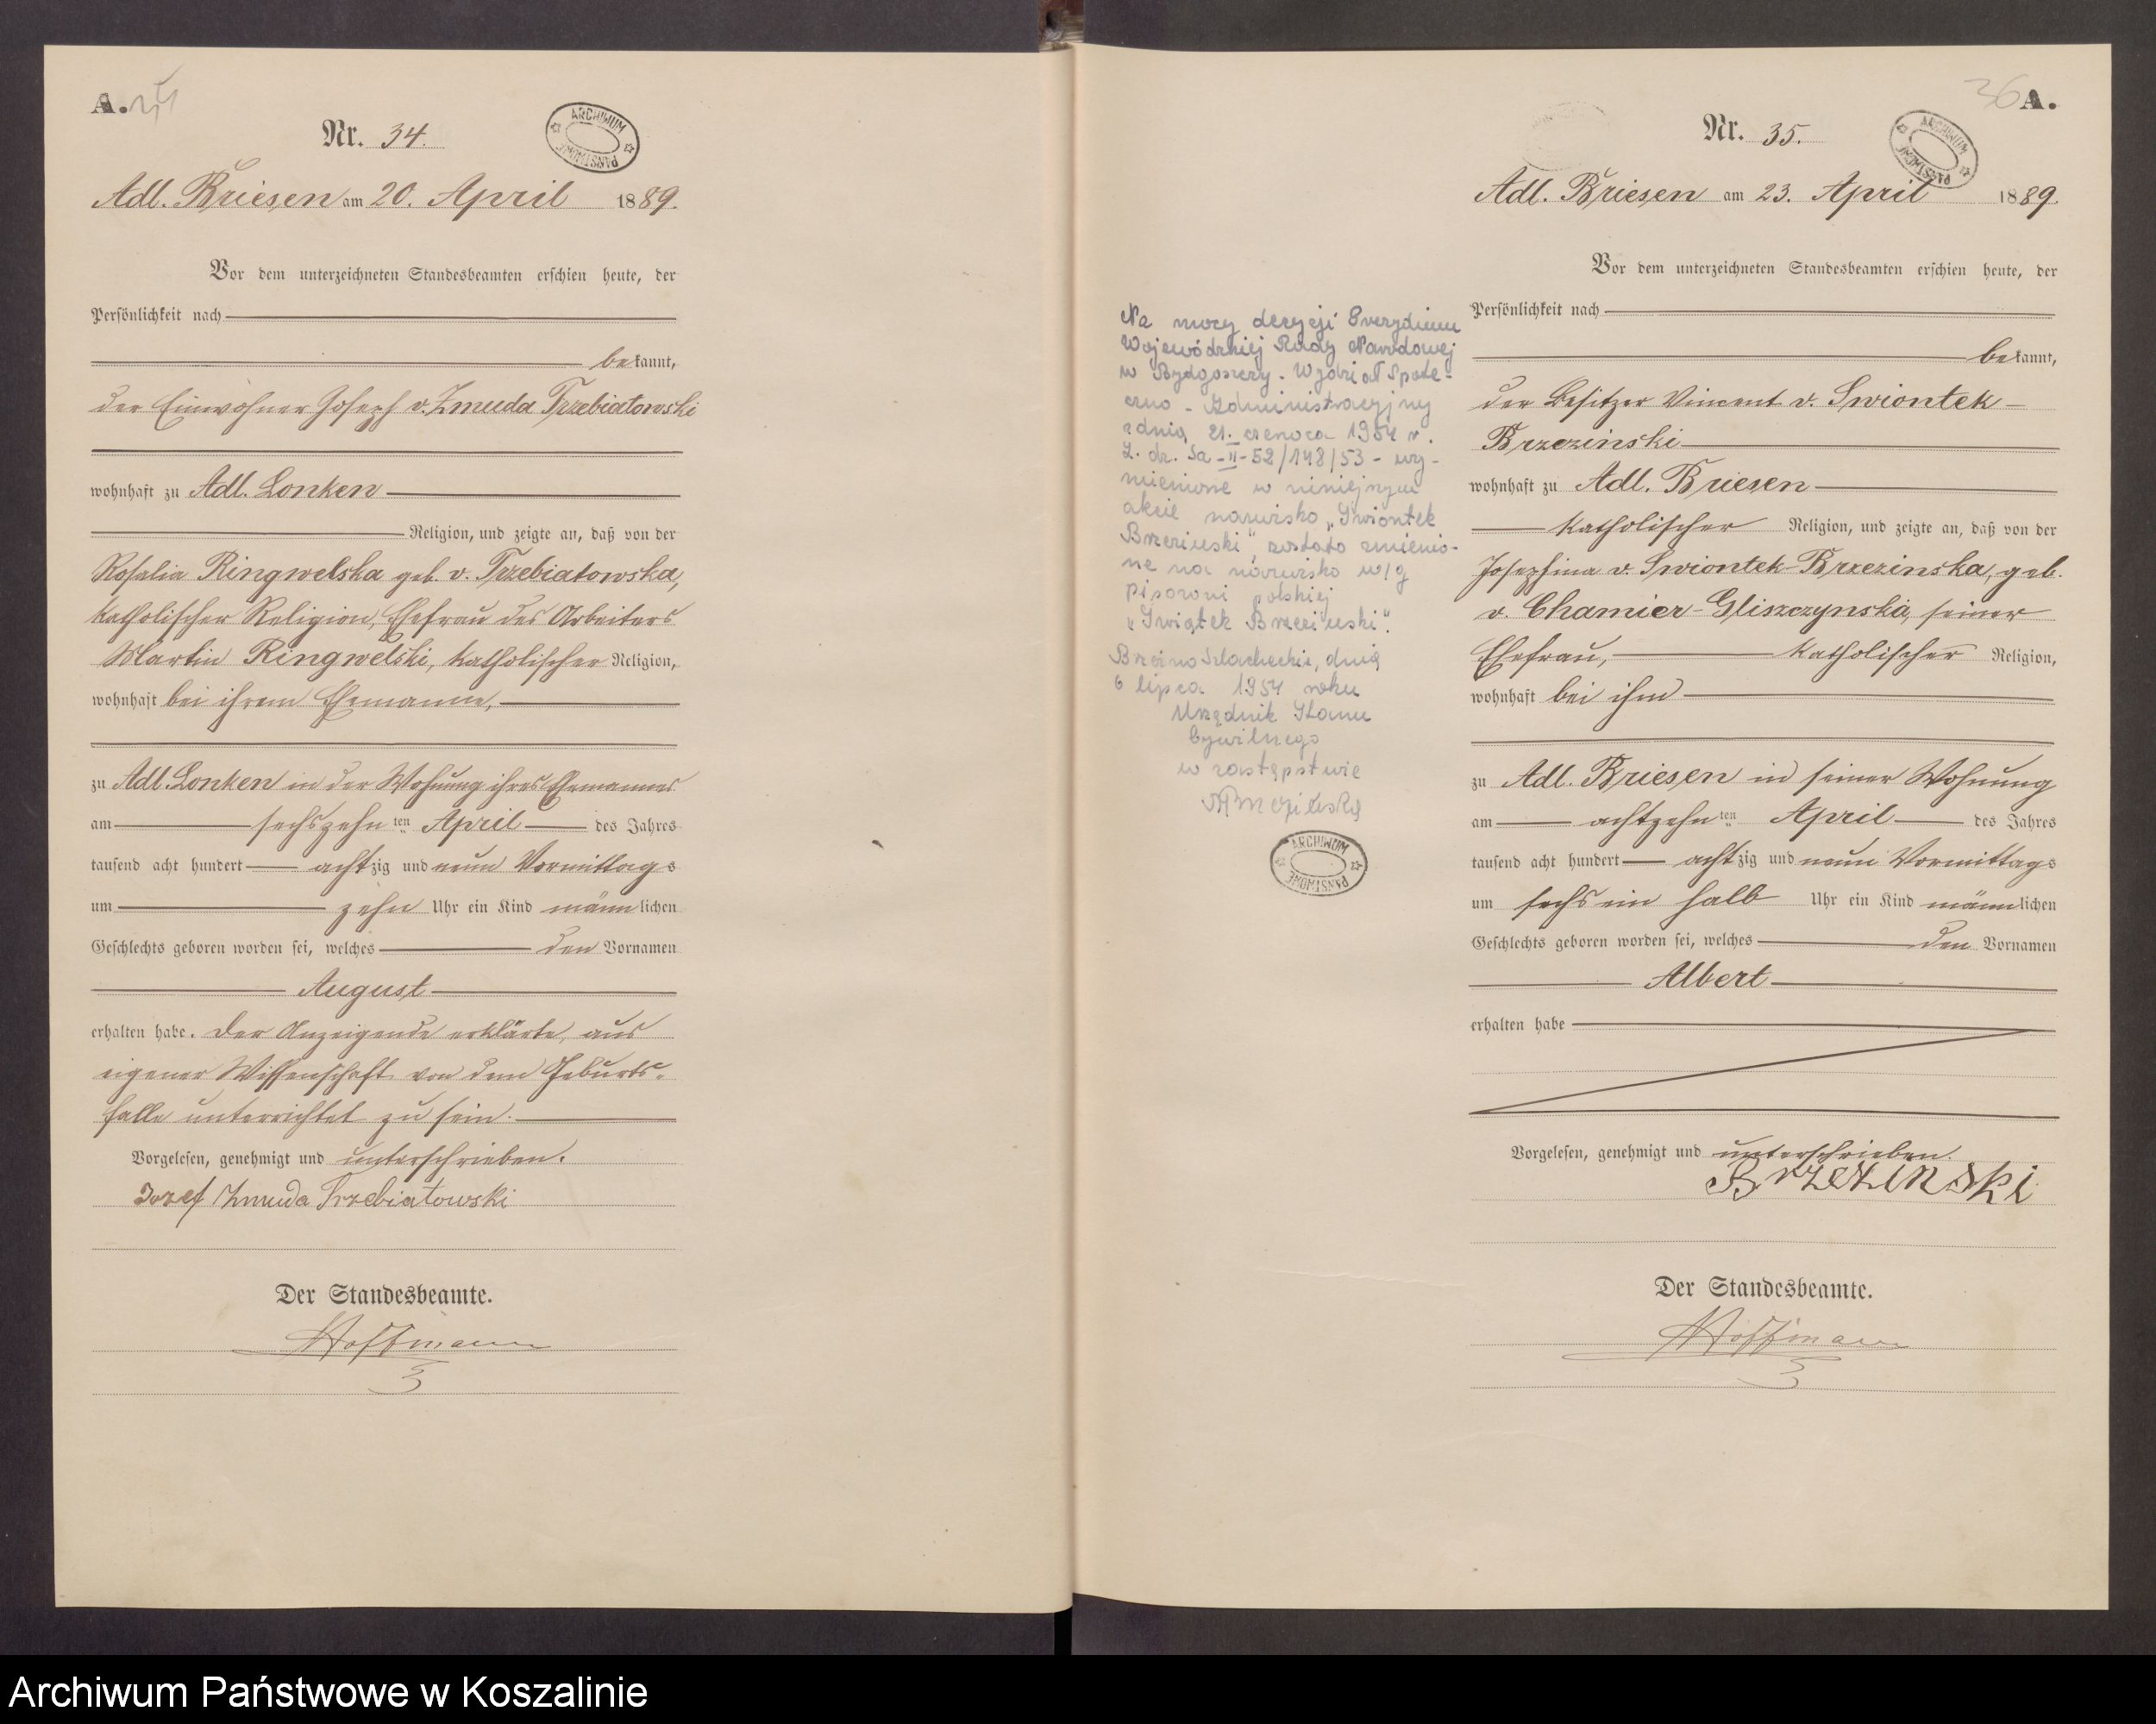 A.
Nr. 34.
ARCHIWUM PAŃSTWOWE
Adl. Briesen am 20. April 1889.
Vor dem unterzeichneten Standesbeamten erschien heute, der
Persönlichkeit nach
bekannt,
der Einwohner Joseph v. Zmuda Trzebiatowski
wohnhaft zu Adl. Lonken
Religion, und zeigte an, daß von der
Rosalia Ringwelska geb. v. Trzebiatowska,
katholischer Religion, Ehefrau des Arbeiters
Martin Ringwelski, katholischer Religion,
wohnhaft bei ihrem Ehemanne,
zu Adl. Lonken in der Wohnung ihres Ehemannes
am sechszehnten April des Jahres
tausend acht hundert achtzig und neun Vormittags
um zehn Uhr ein Kind männlichen
Geschlechts geboren worden sei, welches den Vornamen
August
erhalten habe. Der Anzeigende erklärte, aus
eigener Wissenschaft von dem Geburts-
falle unterrichtet zu sein.
Vorgelesen, genehmigt und unterschrieben.
Jozef Zmuda Trzebiatowski
Der Standesbeamte.
Hoffmann
36 A.
Nr. 35.
ARCHIWUM PAŃSTWOWE
Adl. Briesen am 23. April 1889.
Vor dem unterzeichneten Standesbeamten erschien heute, der
Persönlichkeit nach
bekannt,
der Besitzer Vincent v. Swiontek-
Brzezinski
wohnhaft zu Adl. Briesen
katholischer Religion, und zeigte an, daß von der
Josephina v. Swiontek-Brzezinska, geb.
v. Chamier-Gliszczynska, seiner
Ehefrau, katholischer Religion,
wohnhaft bei ihm
zu Adl. Briesen in seiner Wohnung
am achtzehnten April des Jahres
tausend acht hundert achtzig und neun Vormittags
um sechs ein halb Uhr ein Kind männlichen
Geschlechts geboren worden sei, welches den Vornamen
Albert
erhalten habe
Vorgelesen, genehmigt und unterschrieben.
Brzezinski
Der Standesbeamte.
Hoffmann
Na mocy decyzji Prezydium
Wojewódzkiej Rady Narodowej
w Bydgoszczy. Wydział Społe-
czno-Administracyjny
z dnia 21. czerwca 1954 r.
L. dz. Sa-II-52/148/53 - wy-
mienione w niniejszym
akcie nazwisko "Swiontek
Brzezinski", zostało zmienio-
ne na nazwisko w/g
pisowni polskiej
"Swiątek Brzeziński".
Brzeźno Szlacheckie, dnia
6 lipca 1954 roku
Urzędnik Stanu
Cywilnego
w zastępstwie
ARCHIWUM PAŃSTWOWE
Archiwum Państwowe w Koszalinie